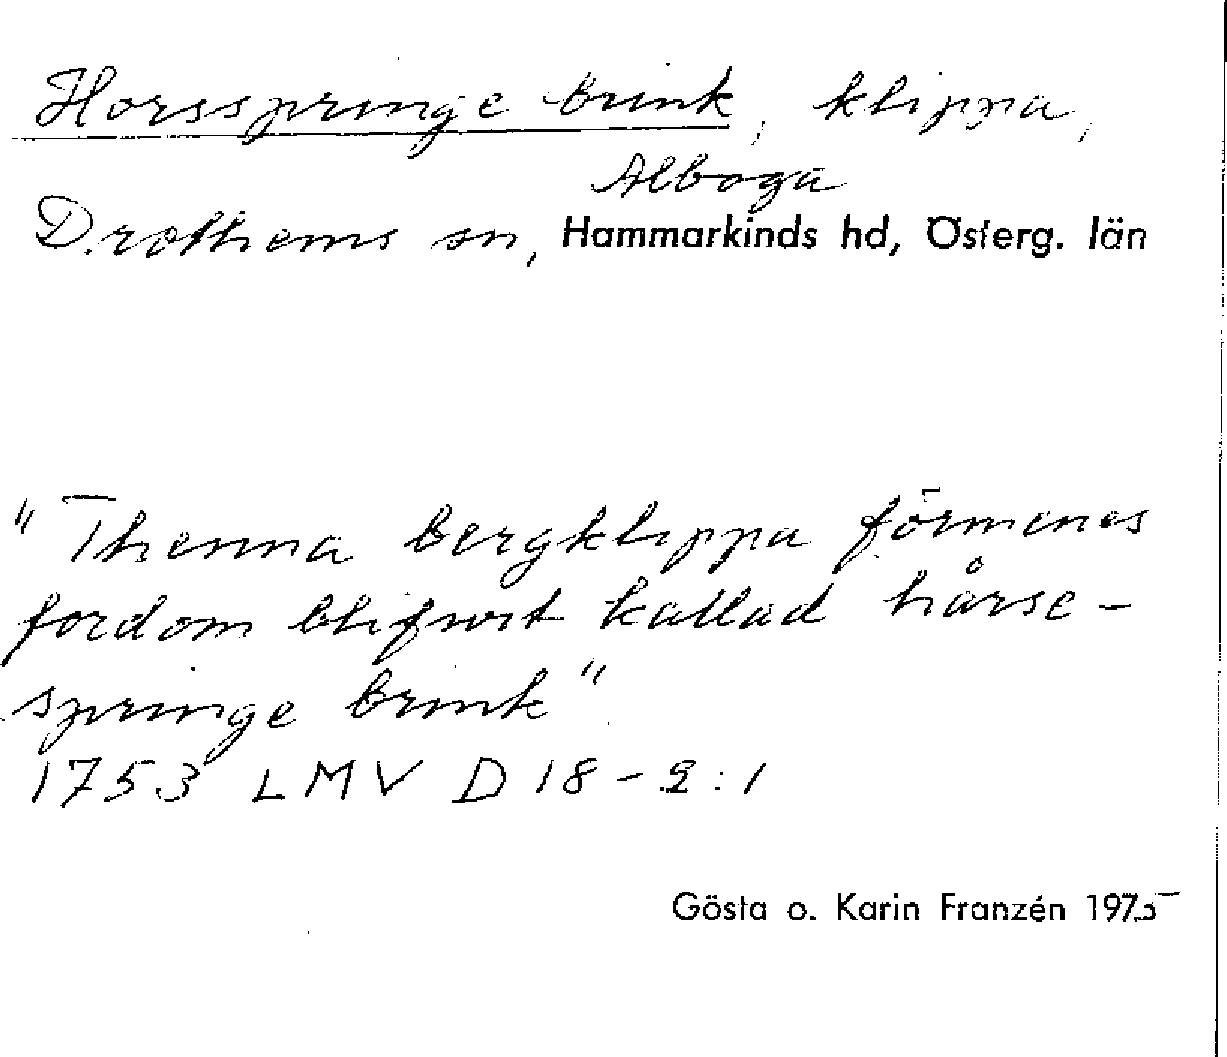 Horsspringe brink, klippa,
Alboga
Drothems sn, Hammarkinds hd, Österg. län
"Thenna bergklippa förmenes
fordom blifwit kallad hårse-
springe brink"
1753 LMV D 18-2:1
Gösta o. Karin Franzén 1975